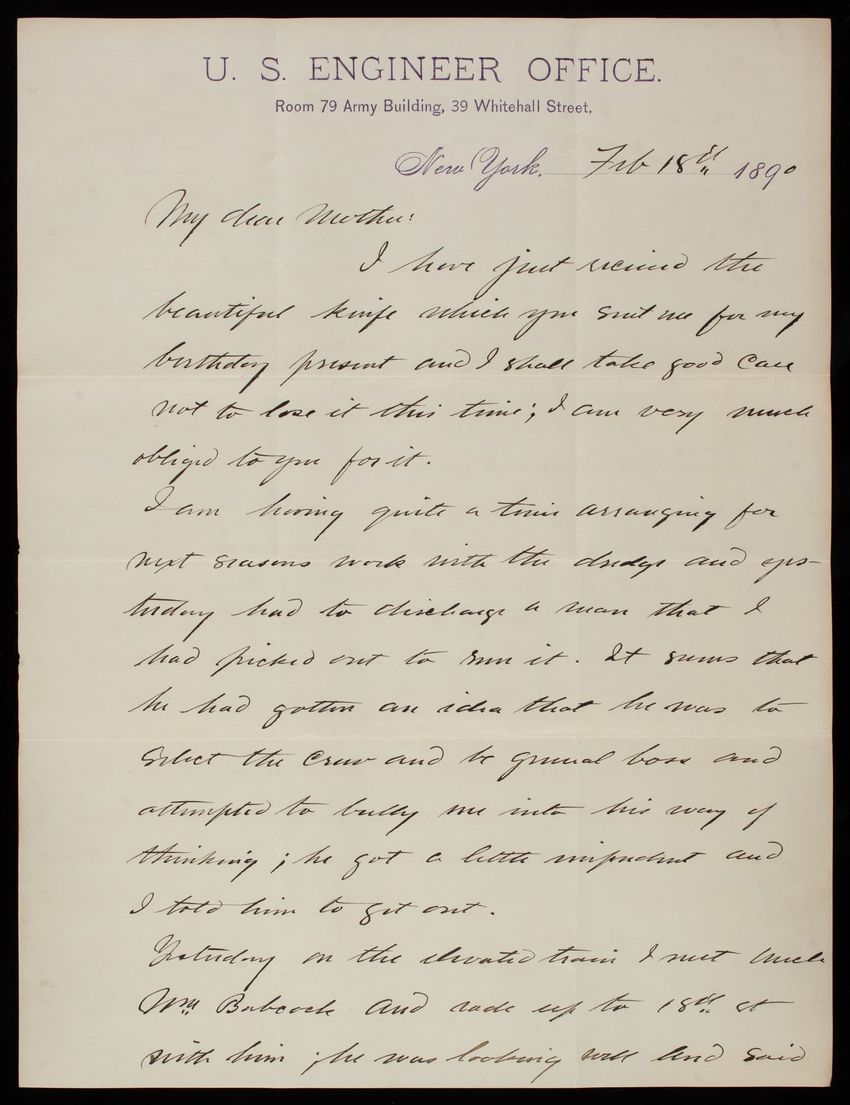 U. S. ENGINEER OFFICE.
Room 79 Army Building, 39 Whitehall Street,
New York. Feb 18th 1890
My dear Mother:
I have just received the
beautiful knife which you sent me for my
birthday present and I shall take good care
not to lose it this time; I am very much
obliged to you for it.
I am having quite a time arranging for
next seasons work with the dredge and yes-
terday had to discharge a man that I
had picked out to run it. It seems that
he had gotten an idea that he was to
select the crew and be general boss and
attempted to bully me into his way of
thinking; he got a little impudent and
I told him to get out.
Yesterday on the elevated train I met Uncle
Wm Babcock and rode up to 18th st
with him; he was looking well and said